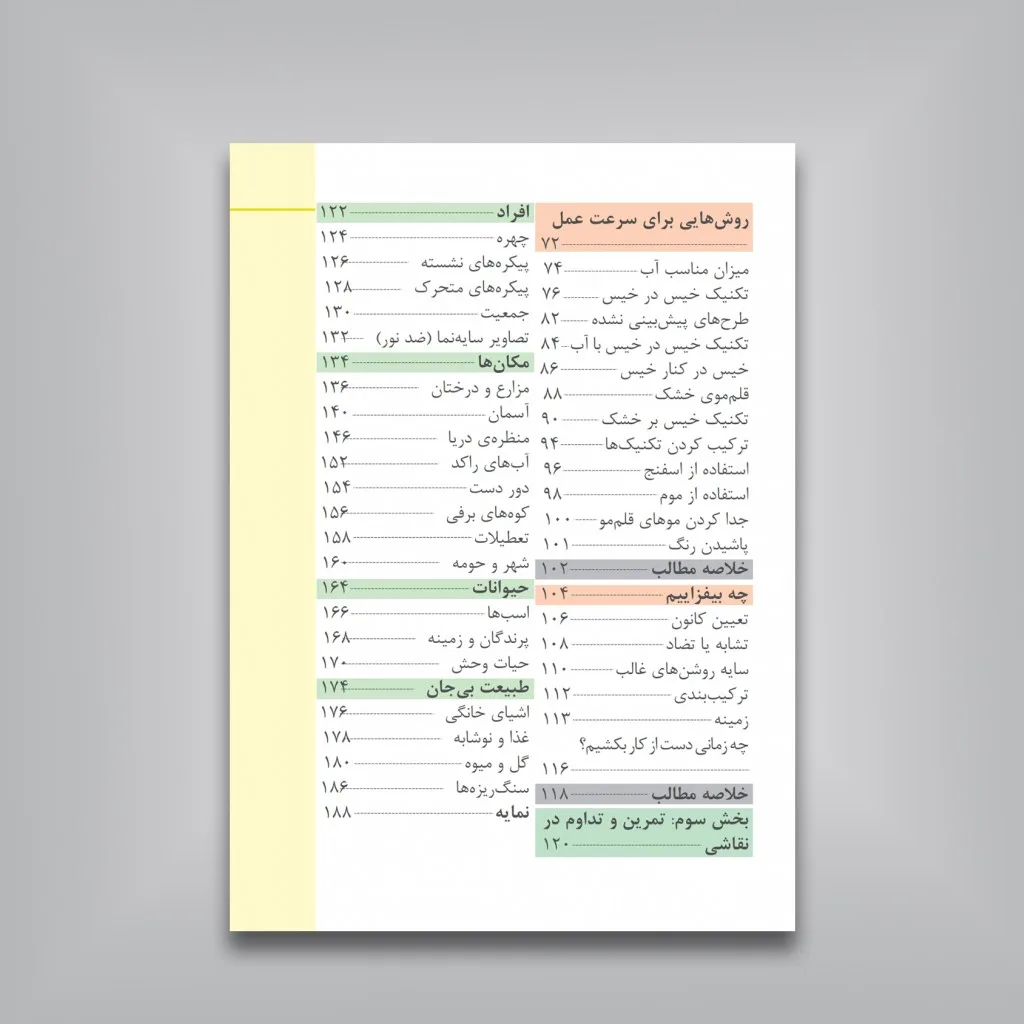 روش‌هایی برای سرعت عمل
۷۲
میزان مناسب آب ۷۴
تکنیک خیس در خیس ۷۶
طرح‌های پیش‌بینی نشده ۸۲
تکنیک خیس در خیس با آب ۸۴
خیس در کنار خیس ۸۶
قلم‌موی خشک ۸۸
تکنیک خیس بر خشک ۹۰
ترکیب کردن تکنیک‌ها ۹۴
استفاده از اسفنج ۹۶
استفاده از موم ۹۸
جدا کردن موهای قلم‌مو ۱۰۰
پاشیدن رنگ ۱۰۱
خلاصه مطالب ۱۰۲
چه بیفزاییم ۱۰۴
تعیین کانون ۱۰۶
تشابه یا تضاد ۱۰۸
سایه روشن‌های غالب ۱۱۰
ترکیب‌بندی ۱۱۲
زمینه ۱۱۳
چه زمانی دست از کار بکشیم؟
۱۱۶
خلاصه مطالب ۱۱۸
بخش سوم: تمرین و تداوم در
نقاشی ۱۲۰
افراد ۱۲۲
چهره ۱۲۴
پیکره‌های نشسته ۱۲۶
پیکره‌های متحرک ۱۲۸
جمعیت ۱۳۰
تصاویر سایه‌نما (ضد نور) ۱۳۲
مکان‌ها ۱۳۴
مزارع و درختان ۱۳۶
آسمان ۱۴۰
منظره‌ی دریا ۱۴۶
آب‌های راکد ۱۵۲
دور دست ۱۵۴
کوه‌های برفی ۱۵۶
تعطیلات ۱۵۸
شهر و حومه ۱۶۰
حیوانات ۱۶۴
اسب‌ها ۱۶۶
پرندگان و زمینه ۱۶۸
حیات وحش ۱۷۰
طبیعت بی‌جان ۱۷۴
اشیای خانگی ۱۷۶
غذا و نوشابه ۱۷۸
گل و میوه ۱۸۰
سنگ‌ریزه‌ها ۱۸۶
نمایه ۱۸۸